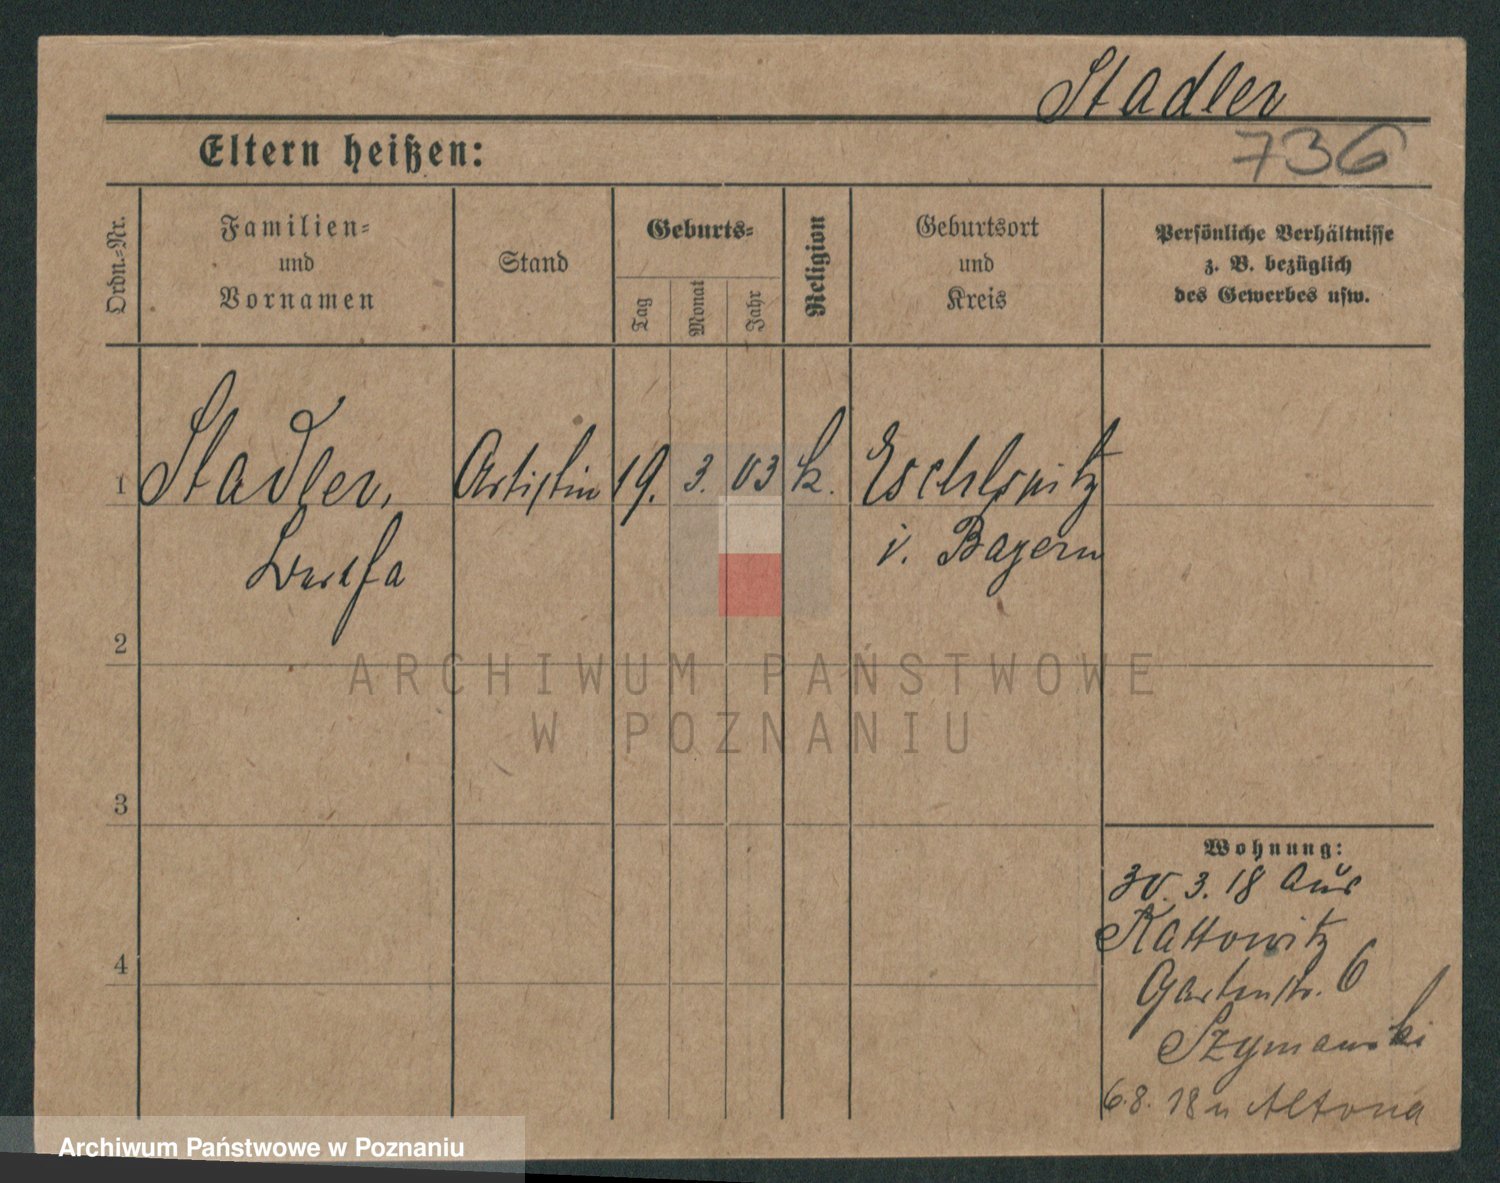 Stadler
Eltern heißen:
736
Ordn.-Nr.
Familien-
und
Vornamen
Stand
Geburts-
Tag
Monat
Jahr
Religion
Geburtsort
und
Kreis
Persönliche Verhältnisse
z. B. bezüglich
des Gewerbes usw.
1
Stadler, Artistin 19. 3. 03 k. Eschlspitz
i. Bayern
2
3
4
Wohnung:
30. 3. 18 aus
Kattowitz
Gartenstr. 6
Szymanski
6.8. 18 n Altona
ARCHIWUM PAŃSTWOWE
W POZNANIU
Archiwum Państwowe w Poznaniu